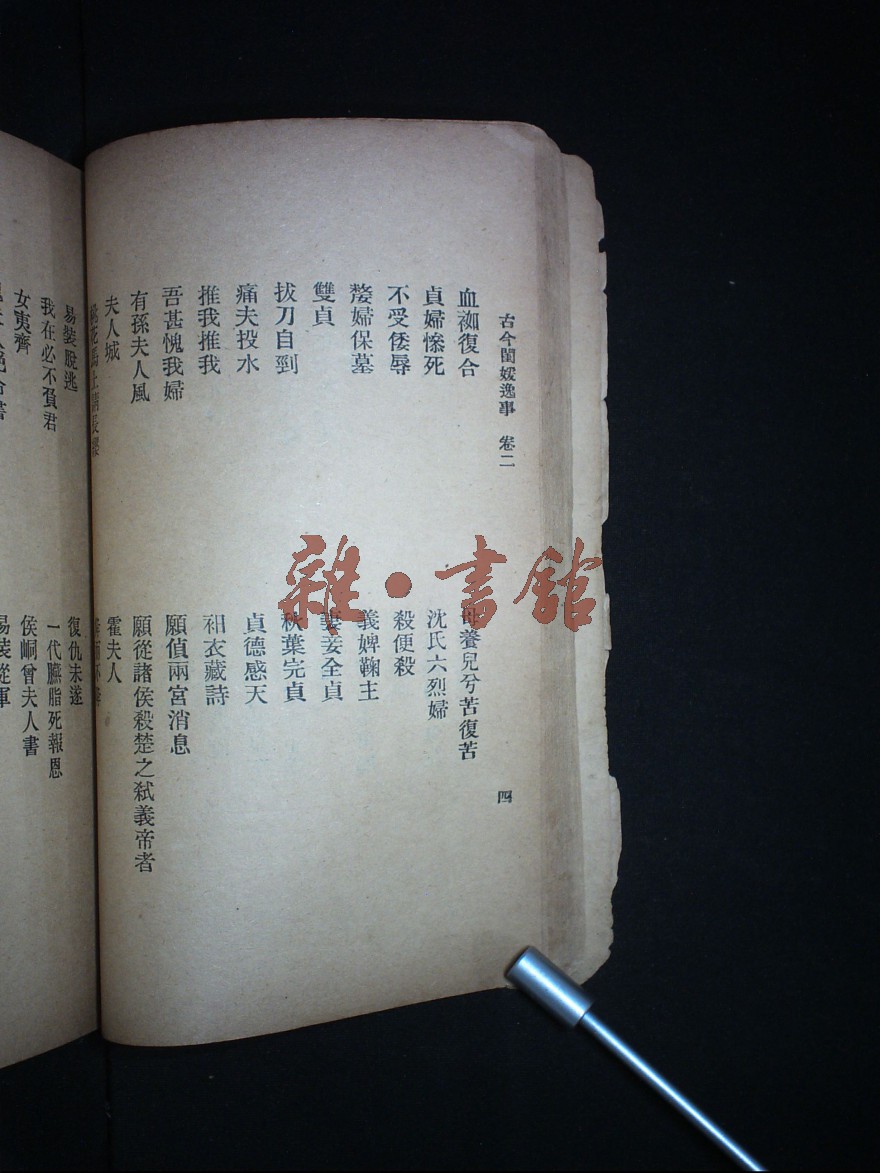 古今閨媛逸事 卷二 四
血衂復合
貞婦慘死
不受倭辱
嫠婦保墓
雙貞
拔刀自剄
痛夫投水
推我推我
吾甚愧我婦
有孫夫人風
夫人城
養兒兮苦復苦
沈氏六烈婦
殺便殺
義婢鞠主
妻妾全貞
秋葉完貞
貞德感天
衵衣藏詩
願偵兩宮消息
願從諸侯殺楚之弒義帝者
霍夫人
易裝脫逃
我在必不負君
女夷齊
復仇未遂
一代臙脂死報恩
侯峒曾夫人書
易裝從軍
雜·書館